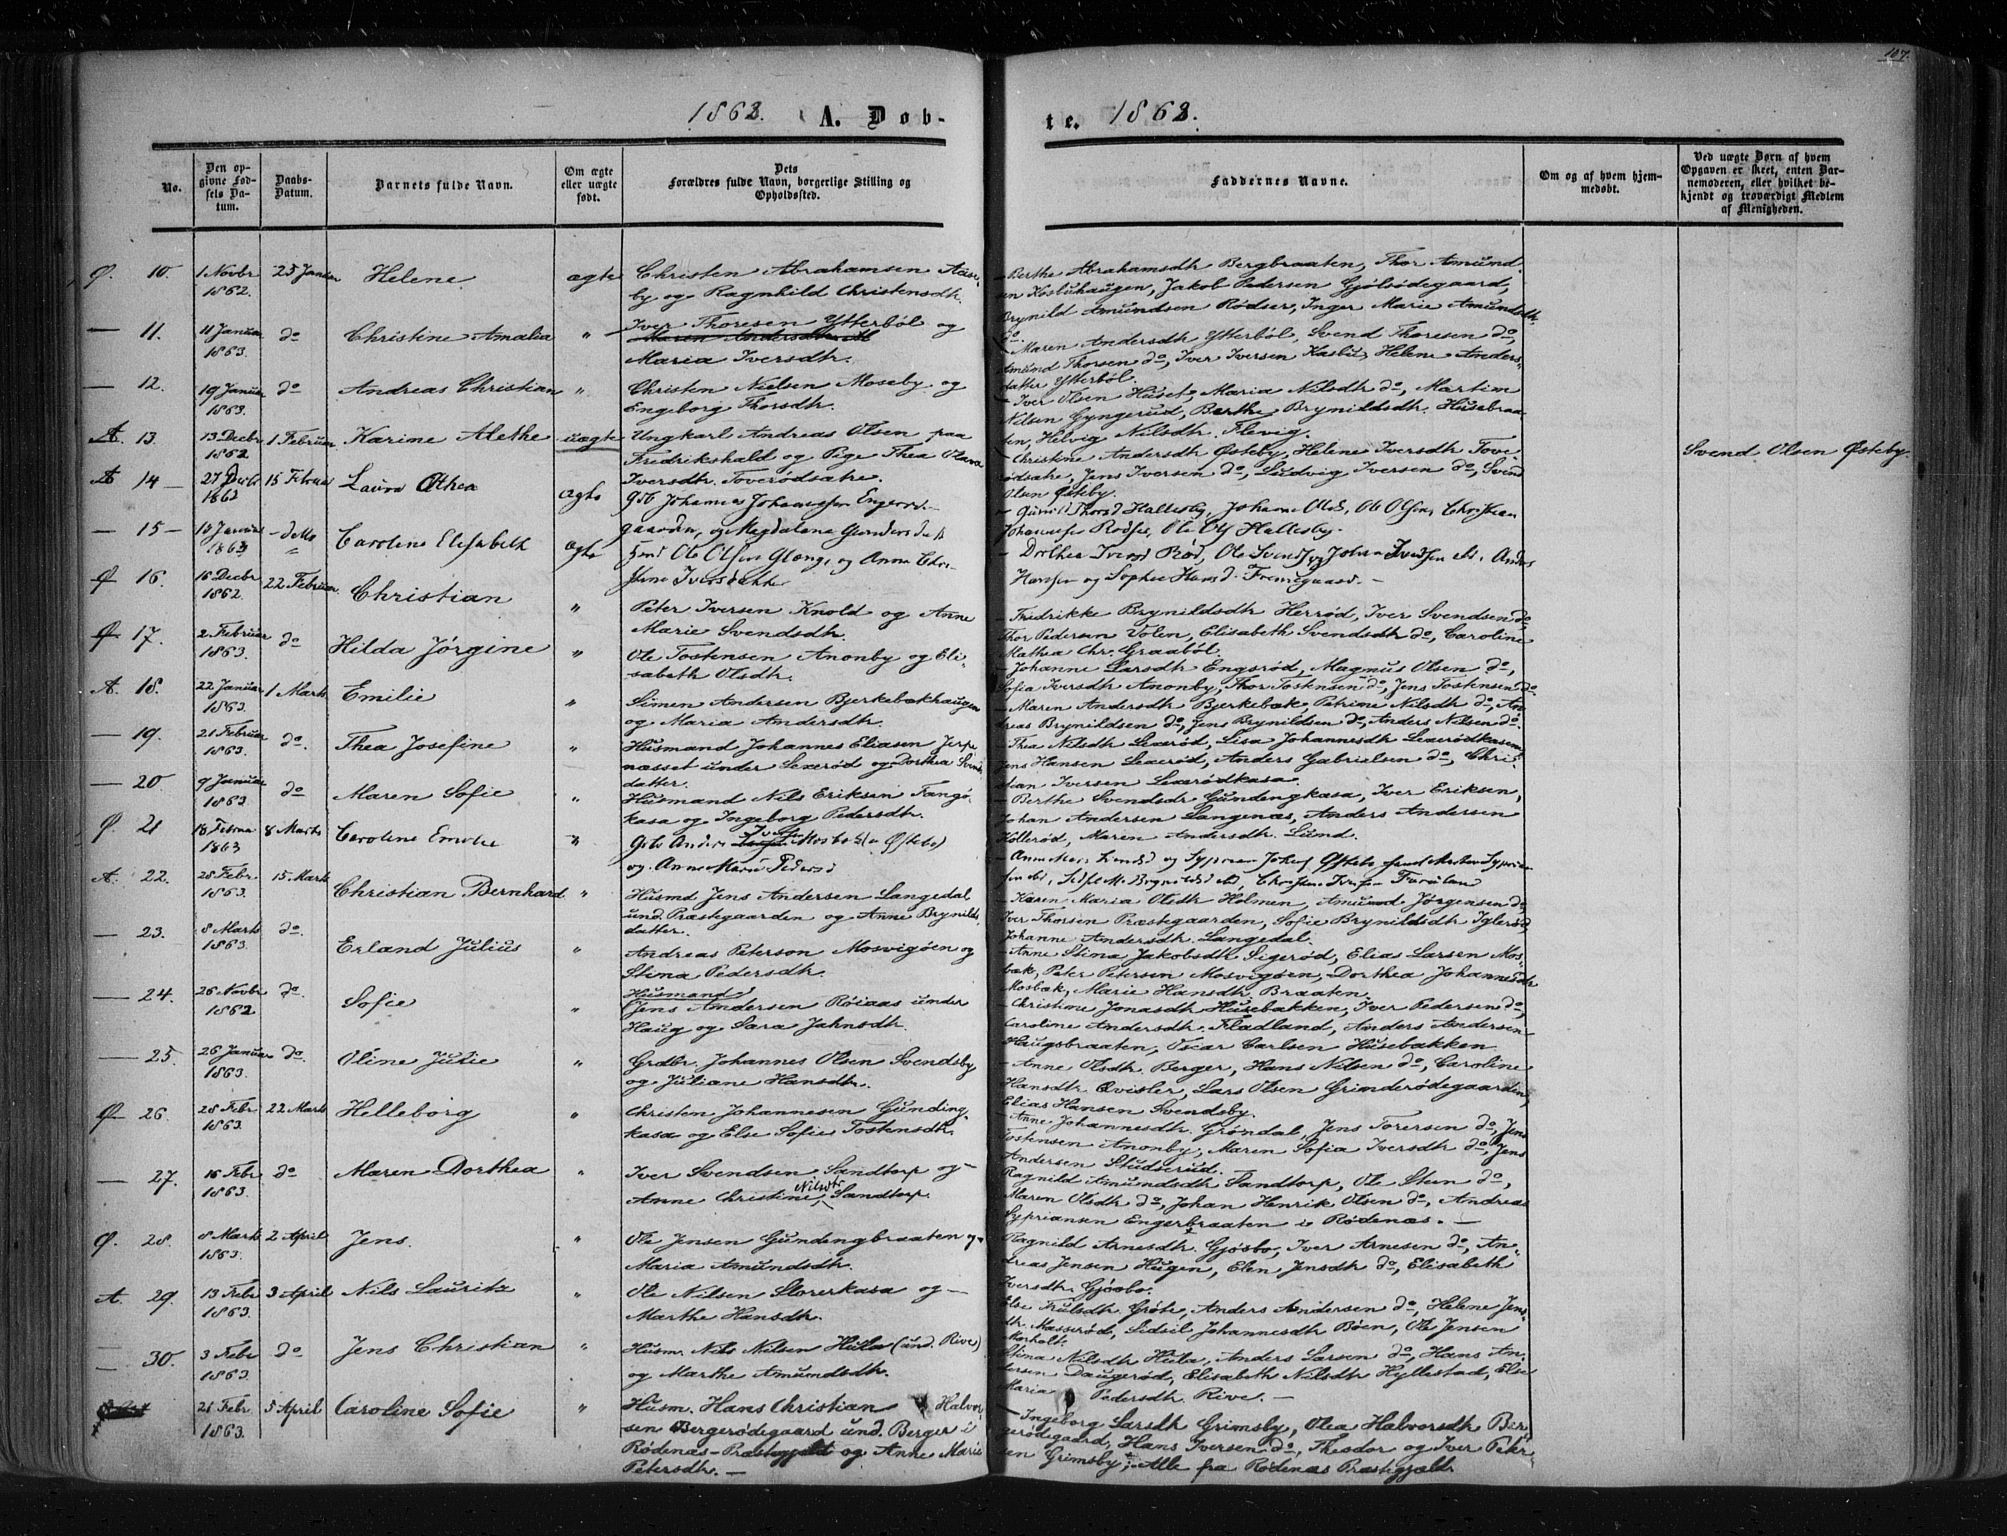 107.
1863. A. Døb-
te. 1863.
No.
Den opgivne Fødsels Datum.
Daabs-Datum.
Barnets fulde Navn.
Om ægte eller uægte født.
Dets Forældres fulde Navn, borgerlige Stilling og Opholdssted.
Faddernes Navne.
Om og af hvem hjemmedøbt.
Ved uægte Børn af hvem Opgaven er skeet, enten Barnemoderen, eller hvilket bekjendt og troværdigt Medlem af Menigheden.
Ø. 10. 1 Novbr 1862. 25 Januar Helene ægte Christen Abrahamsen Aaseby og Ragnhild Christensdtr.
Berthe Abrahamsdtr Bergbraaten, Thor Amundsen Kosbuhaugen, Jakob Pedersen Gjølsødegaard, Brynild Amundsen Rødser, Inger Marie Amundsdtr. do
— 11. 11 Januar 1863. do Christine Amalia " Iver Thoresen Ytterbøl og Maria Iversdtr.
Maren Andersdtr Ytterbøl, Svend Thoresen do, Amund Thorsen do, Iver Iversen Kasbu, Helene Andersdatter Ytterbøl.
— 12. 19 Januar 1863. do Andreas Christian " Christen Nielsen Moseby og Engeborg Thorsdtr.
Iver Olsen Huset, Maria Nilsdtr do, Martin Nilsen Gyngerud, Berthe Brynildsdtr. Husebraaten, Helvig Nilsdtr. Flevig.
A. 13. 13 Decbr 1862 1 Februar Karine Alethe uægte Ungkarl Andreas Olsen paa Fredrikshald og Pige Thea Olava Iversdtr. Toverødsætre.
Christine Andersdtr Østeby, Helene Iversdtr Toverødsætre, Jens Iversen do, Ludvig Iversen do, Svend Olsen Østeby.
Svend Olsen Østeby.
A 14 — 27 Decbr 1862 15 Februar Laura Athea ægte Gdb Johannes Johannesen Engerødgaarden, og Magdalena Gundersdatt
Gunild Thorsd Hallesby, Johanne Olsd, Ole Olsen, Christian Johannesen Rødser, Ole Ols Hallesby.
— 15 — 1863 detto Caroline Elisabeth ægte Ole Olsen Glong, og Anne Christine Iversdatter
Dorthea Iversd Rød, Ole Svendsen, Johan Svendsen do, Anders Hansen og Sophie Hansd. —
Ø 16. 16 Decbr 1862. 22 Februar Christian " Peter Iversen Knold og Anne Marie Svendsdtr.
Fredrikke Brynildsdtr Herrød, Iver Svendsen do, Thor Pedersen Volen, Elisabeth Svendsdtr do, Caroline Mathea Chr. Graabøl.
Ø 17. 2 Februar 1863. do Hilda Jørgine " Ole Tostensen Anonby og Elisabeth Olsdtr.
Johanne Larsdtr Engsrød, Magnus Olsen do, Sofia Iversdtr Anonby, Thor Tostensen do, Jens Tostensen do
A. 18. 22 Januar 1863. 1 Marts Emilie " Simen Andersen Bjerkebækhaugen og Maria Andersdtr.
Maren Andersdtr Bjerkebæk, Petrine Nilsdtr do, Andreas Brynildsen do, Jens Brynildsen do, Anders Nilsen do.
— 19. 21 Februar 1863. do. Thea Josefine " Husmand Johannes Eliasen Jerpenæsset under Lexerød og Dorthea Svendsdatter.
Thea Nilsdtr Lexerød, Lisa Johannesdtr Lexerødkasen, Jens Hansen Lexerød, Anders Gabrielsen do, Christian Iversen Lexerødkasa.
— 20. 9 Januar 1863. do Maren Sofie " Husmand Nils Eriksen Tangøkasa og Ingeborg Pedersdtr.
Berthe Svendsdr Gundengkasa, Iver Eriksen, Johan Andersen Langenæs, Anders Andersen Kollerød, Maren Andersdtr. Lund.
Ø. 21 18 Februar 1863 8 Marts Caroline Emilie " Gdb Anders Mosbo (a Østebø) og Anne Marie Pedersd
A. 22. 28 Febr. 1863. 15 Marts Christian Bernhard " Husmd Jens Andersen Langedal und. Præstegaarden og Anne Brynildsdatter.
Karen Maria Olsdtr Holmen, Amund Jørgensen do, Iver Thorsen Præstegaarden, Sofie Brynildsdtr Iglerød, Johanne Andersdtr. Langedal.
— 23. 8 Marts 1863. do. Erland Julius " Andreas Peterson Mosvigøen og Stina Pedersdtr.
Anne Stina Jakobsdtr Sigerød, Elias Larsen Mosbæk, Peter Petersen Mosvigøen, Dorthea Johannesdtr Mosbæk, Marie Hansdtr. Braaten.
— 24. 26 Novbr 1862 do. Sofie " Husmand Jens Andersen Röiaas under Haug og Sara Jahnsdtr.
Christine Jonasdtr Husebakken, Iver Pedersen do, Caroline Andersdtr. Fladland, Anders Andersen Haugsbraaten, Oscar Carlsen Husebakken.
— 25. 26 Januar 1863. do. Oline Julie " Grdbr. Johannes Olsen Svendsby og Juliane Hansdtr.
Anne Olsdtr. Berger, Hans Nilsen do, Caroline Hansdtr. Qvisler, Lars Olsen Grimderødegaarden, Elias Hansen Svendsby.
Ø 26. 28 Febr 1863. 22 Marts Helleborg " Christen Johannesen Gundingkasa og Else Sofie Tostensdtr.
Anne Johannesdtr. Grøndal, Jens Torersen do, Jens Tostensen Anonby, Maren Sofia Iversdtr do, Jens Andersen Studserud.
— 27. 16 Febr 1863. do Maren Dorthea " Iver Svendsen Sandtorp og Anne Christine Nilsdtr Sandtorp.
Ragnild Amundsdtr Sandtorp, Ole Steen do, Maren Olsdtr do, Johan Henrik Olsen do, Andreas Sypriansen Engerbraaten i Rødenæs. —
Ø. 28. 8 Marts 1863. 2 April Jens. " Ole Jensen Gundengbraaten og Maria Amundsdtr.
Ragnild Arnesdtr. Gjøsbo, Iver Arnesen do, Andreas Jensen Hugen, Elen Jensdtr do, Elisabeth Iversdtr. Gjøsbo.
A. 29. 13 Febr 1863. 3 April Nils Lauritz " Ole Nilsen Slorerkasa og — Marthe Hansdtr.
Else Trulsdtr. Grøte, Anders Andersen do, Helene Jensdtr. Masserød, Lidsil Johannesdtr Böen, Ole Jensen Morholt.
— 30. 3 Febr 1863. do Jens Christian " Husm. Nils Nilsen Hula (und. Rive) og Marthe Amundsdtr.
Stina Nilsdtr Hula, Anders Larsen do, Hans Andersen Daugerød, Elisabeth Nilsdtr Hyllestad, Else Maria Pedersdtr. Rive. —
21 Febr 1863. 5 April Caroline Sofie " Husm. Hans Christian Halvorsen Bergerødegaard und. Berger i Rødenæs-Præstegjeld og Anne Marie Petersdtr. —
Ingeborg Larsdtr Grimsby, Olea Halvorsdtr Bergerødegaard, Hans Iversen do, Theodor og Iver Petersen Grimsby; Alle fra Rødenæs Præstegjeld.